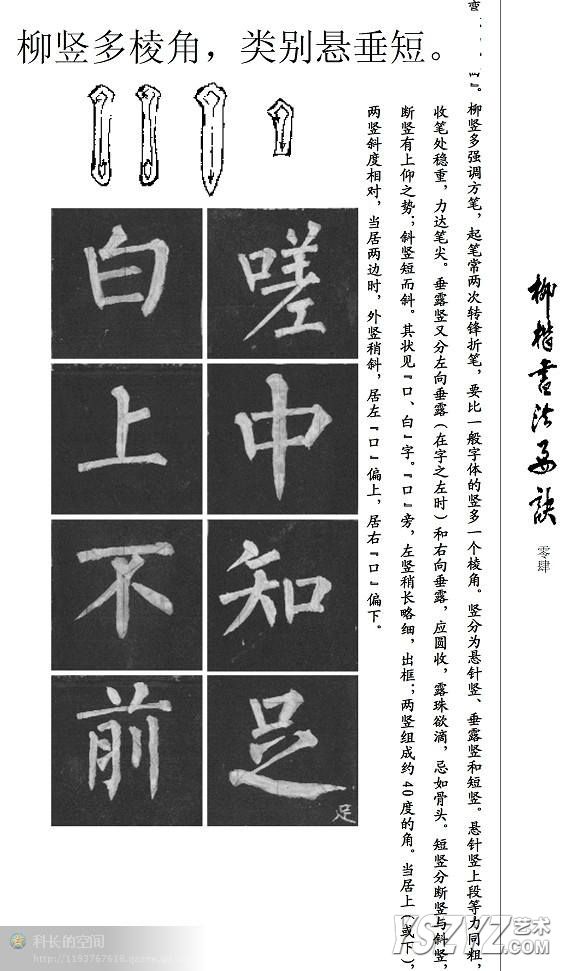 柳竖多棱角，类别悬垂短。
弯
柳竖多强调方笔，起笔常两次转锋折笔，要比一般字体的竖多一个棱角。竖分为悬针竖、垂露竖和短竖。悬针竖上段等力同粗，
收笔处稳重，力达笔尖。垂露竖又分左向垂露（在字之左时）和右向垂露，应圆收，露珠欲滴，忌如骨头。短竖分断竖与斜竖，
断竖有上仰之势；斜竖短而斜。其状见『口、白』字。『口』旁，左竖稍长略细，出框；两竖组成约40度的角。当居上（或下），
两竖斜度相对，当居两边时，外竖稍斜，居左『口』偏上，居右『口』偏下。
柳楷书法要诀
零肆
嗟
中
知
足
足
白
上
不
前
科长的空间
YSZYZ艺术
.com